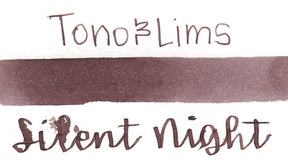 Tono&Lims
Silent Night